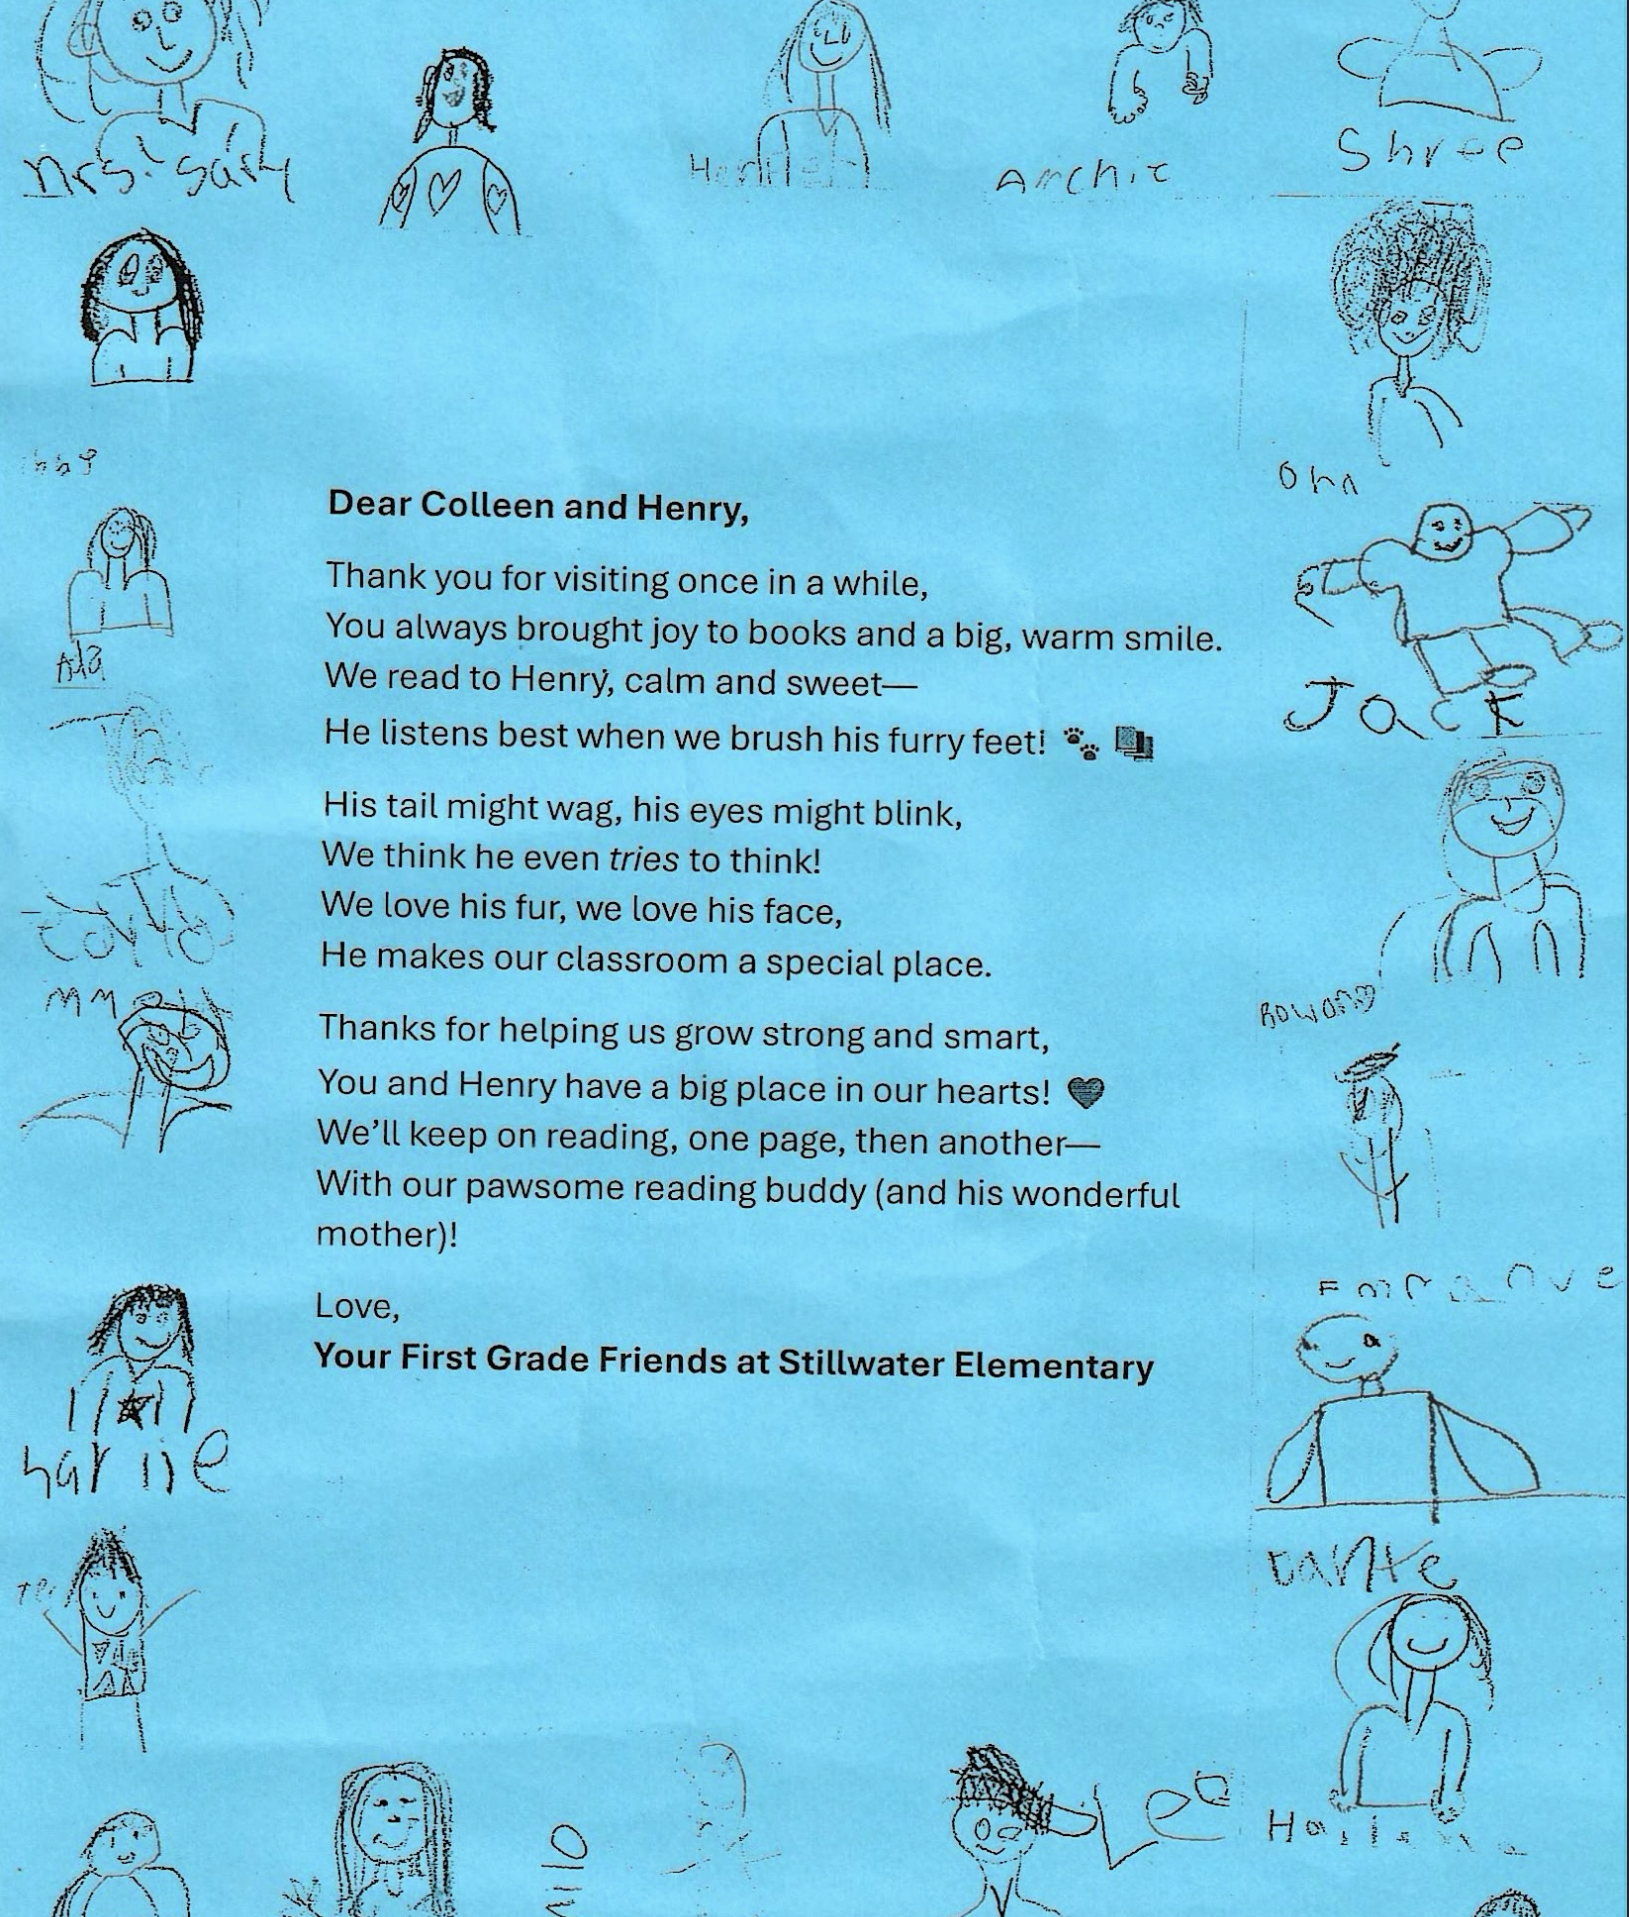 Mrs. Sary
Archie
Shree
Dear Colleen and Henry,
Thank you for visiting once in a while,
You always brought joy to books and a big, warm smile.
We read to Henry, calm and sweet—
He listens best when we brush his furry feet! 🐾 📚
His tail might wag, his eyes might blink,
We think he even tries to think!
We love his fur, we love his face,
He makes our classroom a special place.
Thanks for helping us grow strong and smart,
You and Henry have a big place in our hearts! ♥
We’ll keep on reading, one page, then another—
With our pawsome reading buddy (and his wonderful
mother)!
Love,
Your First Grade Friends at Stillwater Elementary
Ada
Jack
Rowan
Milo
Leo